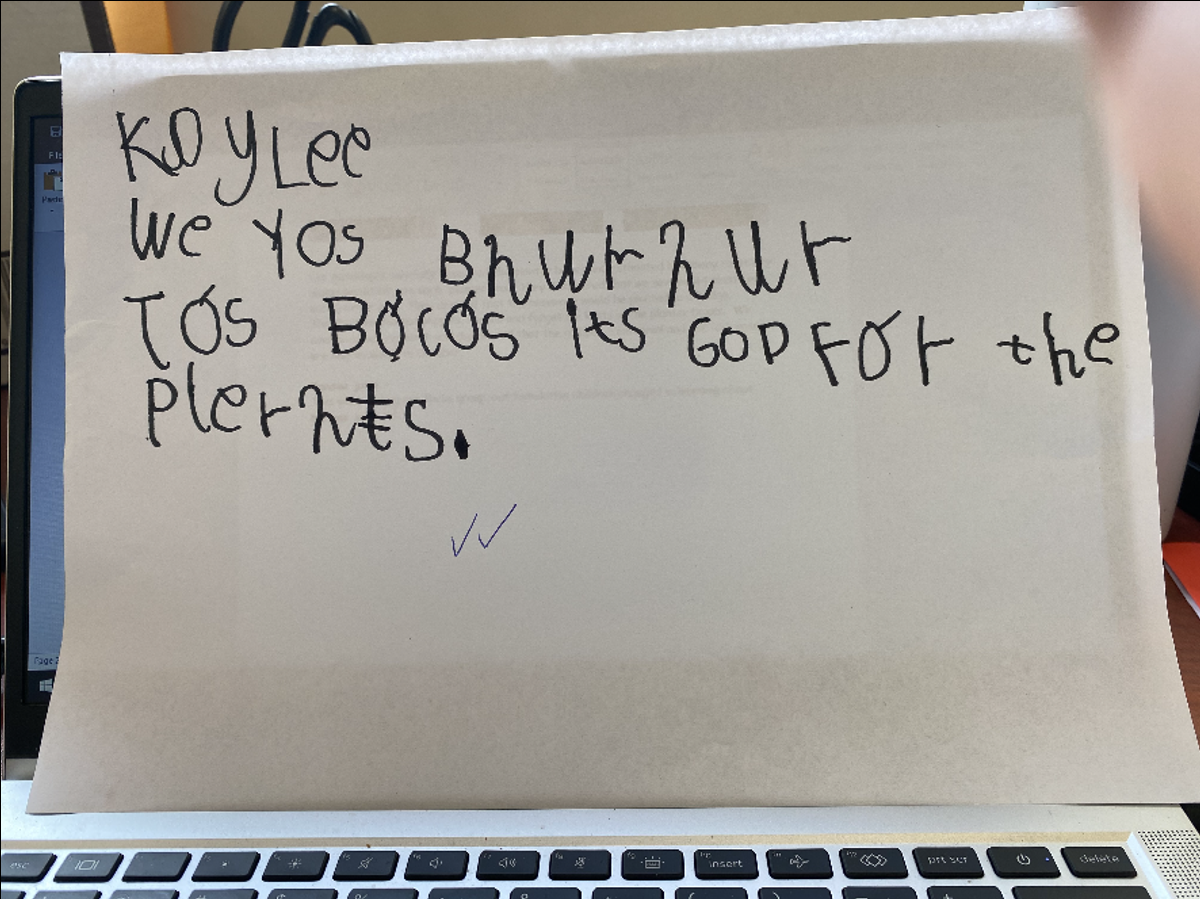 KayLee
We Yos Bhurhur
Tos Bocos Its GOD For the
Plerhts.
esc
insert
prt scr
delete